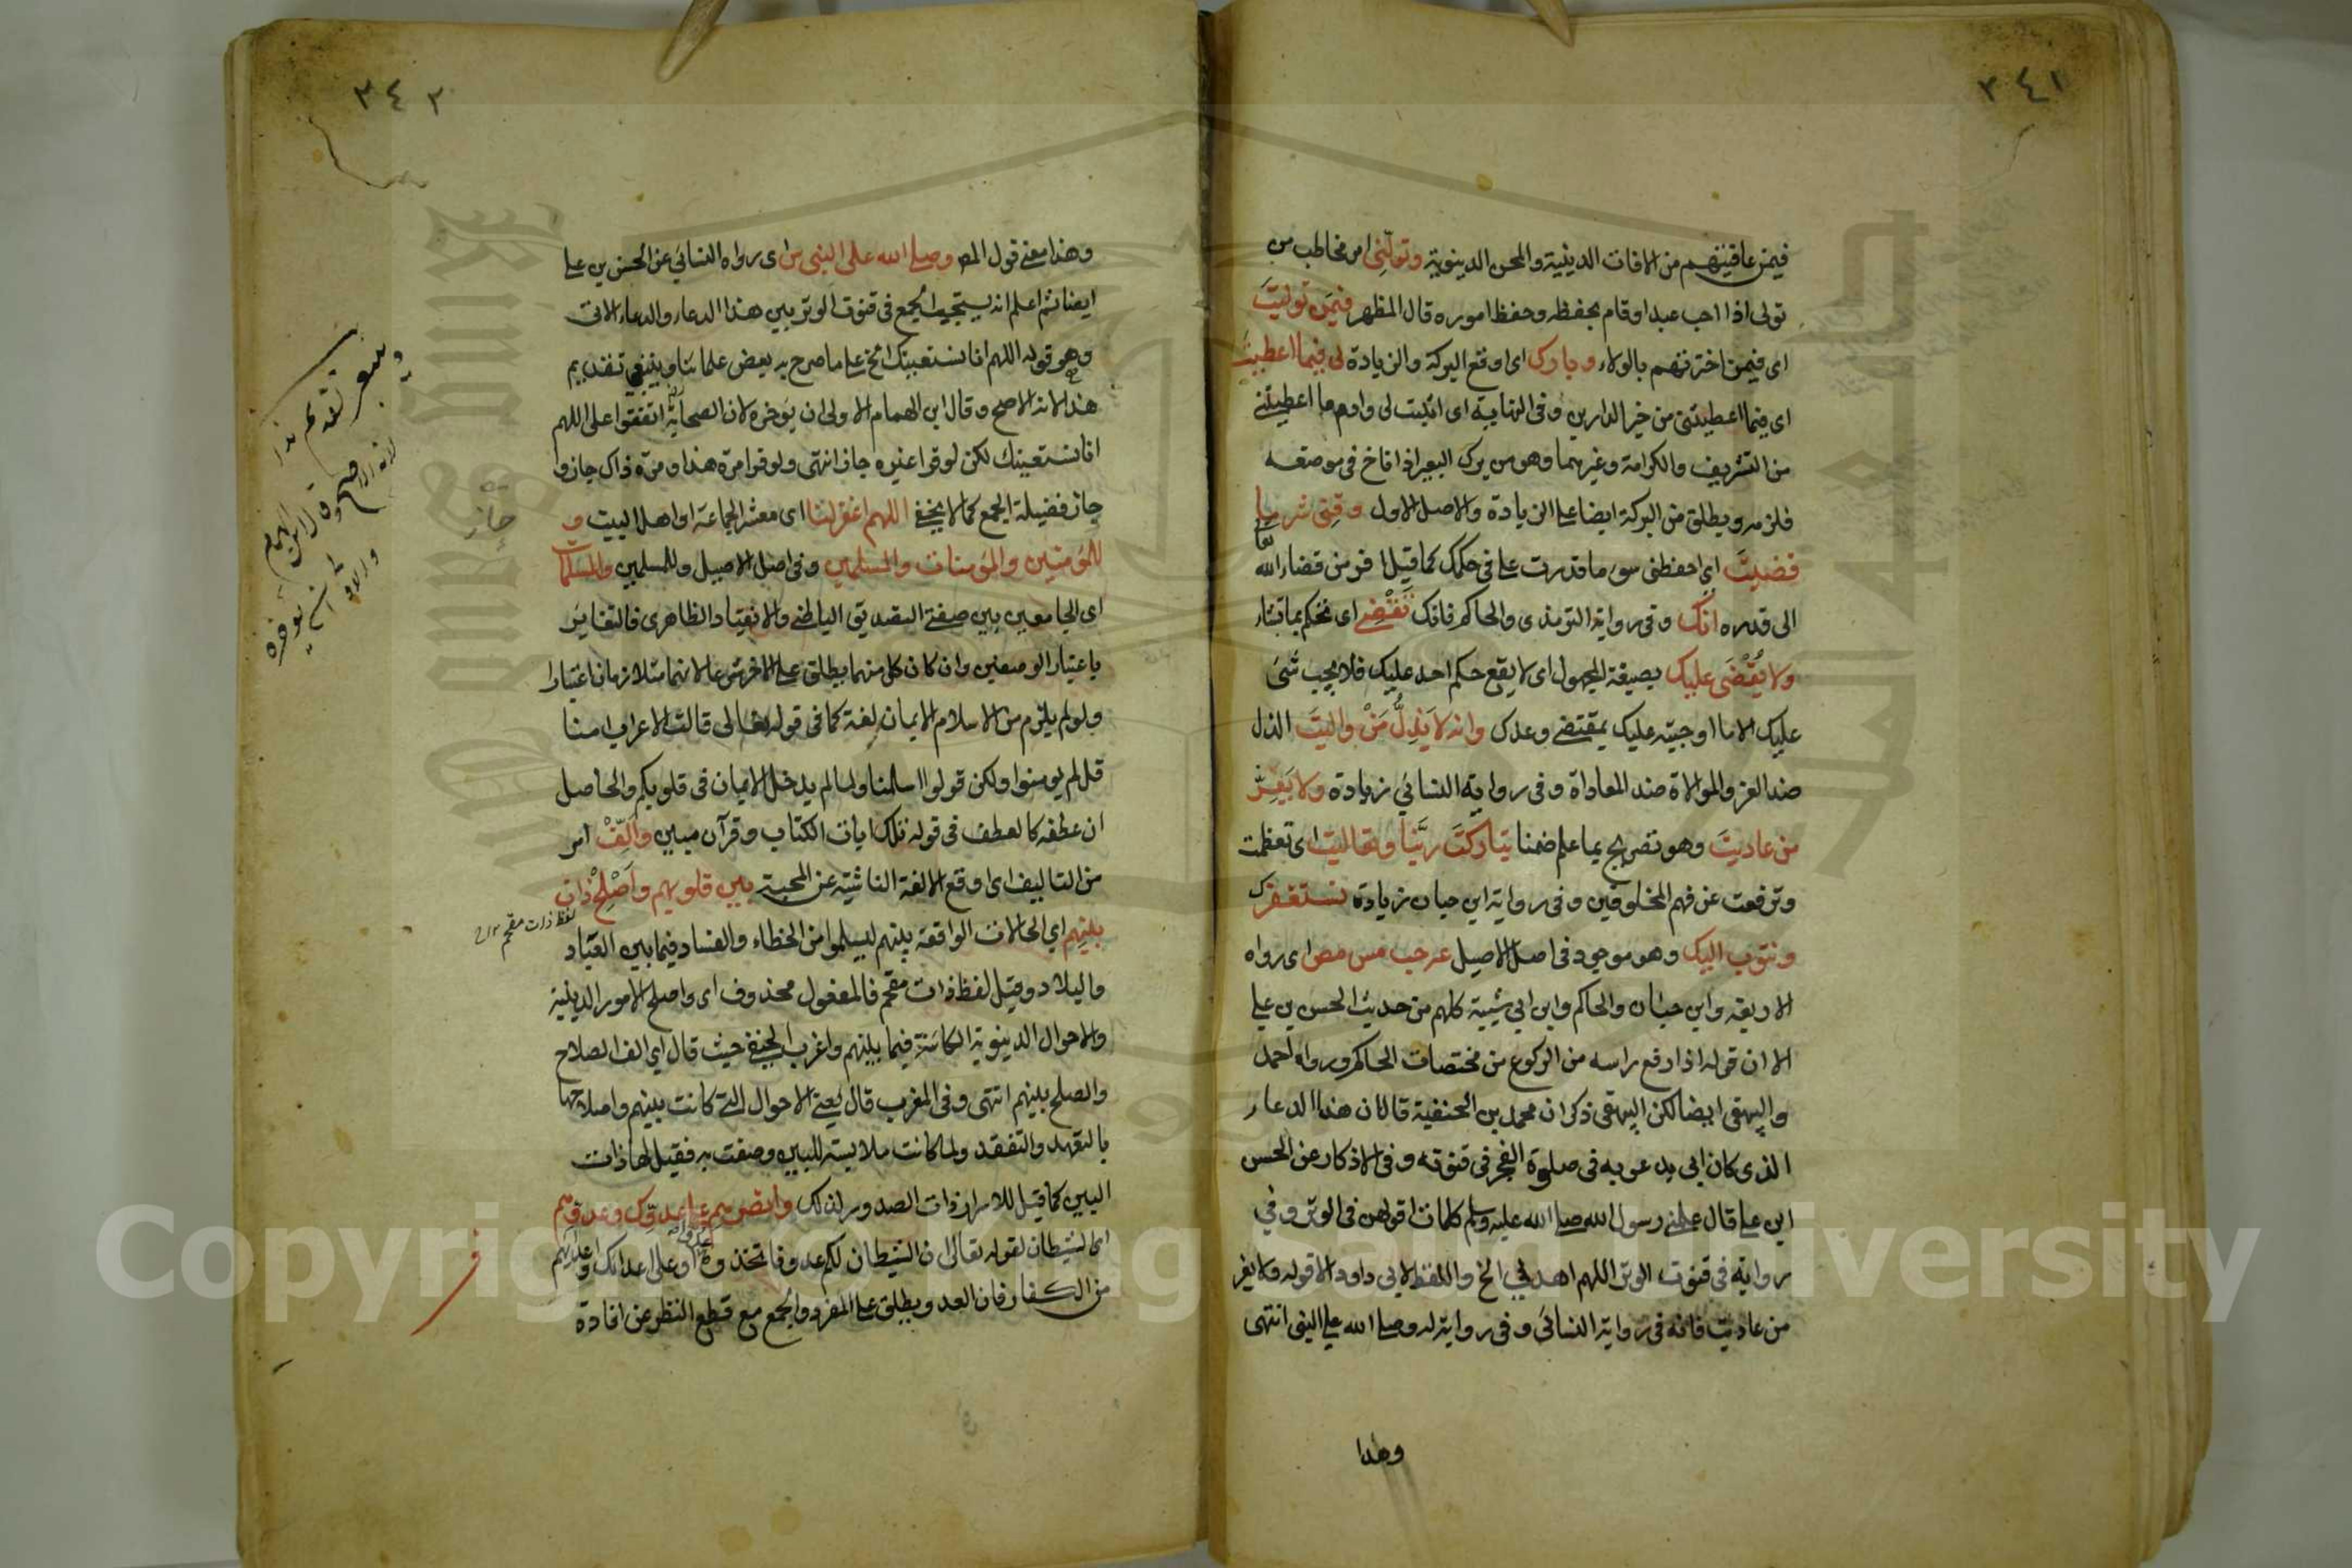 ٣٤١
فيمن عافيتهم من الافات الدينية والمحن الدينوية وتولني امر مخاطب من
تولى اذا احب عبدا وقام بحفظه وحفظ اموره قال المظهر فيمن توليت
اى فيمن اخترتهم بالولاء وبارك اى اوقع البركة والزيادة لى فيما اعطيت
اى فيما اعطيتنى من خير الدارين وفى النهاية اى اثبت لى وادم ما اعطيتنى
من التشريف والكرامة وغيرهما وهو من برك البعير اذا اناخ فى موضعه
فلزمه ويطلق من البركة ايضا على الزيادة والاصل الاول وقنى شر ما
قضيت اي احفظنى سوء ما قدرت على فى حكمك كما قيل افر من قضاء الله
الى قدره انك وفى رواية الترمذى والحاكم فانك تقضى اى تحكم بما تشاء
ولا يُقضَى عليك بصيغة المجهول اى لا يقع حكم احد عليك فلا يجب شئ
عليك الا ما اوجبته عليك بمقتضى وعدك وانه لا يَذِلُّ مَنْ واليتَ الذل
ضد العز والموالاة ضد المعاداة وفى رواية النسائي زيادة ولا يَعِزُّ
من عاديتَ وهو تصريح بما علم ضمنا تباركتَ ربَّنا وتعاليت اى تعظمت
وترفعت عن فهم المخلوقين وفى رواية ابن حبان زيادة نستغفرك
ونتوب اليك وهو موجود فى اصل الاصيل عه حب مس مص اى رواه
الاربعة وابن حبان والحاكم وابن ابى شيبة كلهم من حديث الحسن بن على
الا ان قوله اذا رفع راسه من الركوع من مختصات الحاكم ورواه احمد
والبيهقى ايضا لكن البيهقى ذكر ان محمد بن الحنفية قال ان هذا الدعاء
الذى كان ابى يدعو به فى صلوة الفجر فى قنوته وفى الاذكار عن الحسن
ابن على قال علمنى رسول الله صلى الله عليه وسلم كلمات اقولهن فى الوتر وفي
رواية فى قنوت الوتر اللهم اهدني الخ واللفظ لابى داود الا قوله ولا يعز
من عاديت فانه فى رواية النسائى وفى رواية له وصلى الله على النبى انتهى
وهذا
٣٤٢
وهذا معنى قول المصـ وصلى الله على النبى س اى رواه النسائي عن الحسن بن على
ايضا ثم اعلم انه يستحب الجمع فى قنوت الوتر بين هذا الدعاء والدعاء الاتى
وهو قوله اللهم انا نستعينك الخ على ما صرح به بعض علمائنا وينبغي تقديم
هذا لانه الاصح وقال ابن الهمام الاولى ان يؤخره لان الصحابة اتفقوا على اللهم
انا نستعينك لكن لو قرا غيره جاز انتهى ولو قرا مرة هذا ومرة ذاك جاز و
حاز فضيلة الجمع كما لا يخفى اللهم اغفر لنا اى معشر الجماعة او اهل البيت و
للمؤمنين والمؤمنات والمسلمين وفى اصل الاصيل وللمسلمين والمسلمات
اى الجامعين بين صفتى التصديق الباطنى والانقياد الظاهرى فالتغاير
باعتبار الوصفين وان كان كل منهما يطلق على الاخر شرعا لانهما متلازمان اعتبارا
ولو لم يلزم من الاسلام الايمان لغة كما فى قوله تعالى قالت الاعراب امنا
قل لم يومنوا ولكن قولوا اسلمنا ولما لم يدخل الايمان فى قلوبكم والحاصل
ان عطفه كالعطف فى قوله تلك ايات الكتاب وقرآن مبين والِّفْ امر
من التاليف اى اوقع الالفة الناشئة عن المحبة بين قلوبهم وأَصْلِحْ ذات
بينهم اي الحالات الواقعة بينهم ليسلموا من الخطاء والفساد فيما بين العباد
والبلاد وقيل لفظ ذات مقحم فالمفعول محذوف اى واصلح الامور الدينية
والاحوال الدينوية الكائنة فيما بينهم واغرب الحنفى حيث قال اي الف الصلاح
والصلح بينهم انتهى وفى المغرب قال يعنى الاحوال التى كانت بينهم واصلاحها
بالتعهد والتفقد ولما كانت ملابسة للبين وصفت به فقيل لها ذات
البين كما قيل للاسرار ذات الصدور لذلك وانصرهم على عدوّك وعدوهم
اى الشيطان لقوله تعالى ان الشيطان لكم عدو فاتخذوه عدوا او على اعدائك واعدائهم
من الكفار فان العدو يطلق على المفرد والجمع مع قطع النظر عن افادة
لفظ ذات مقحم
حاز
وينبغى تقديم هذا
لانه الاصح وقال ابن الهمام
والاولى ان يؤخره